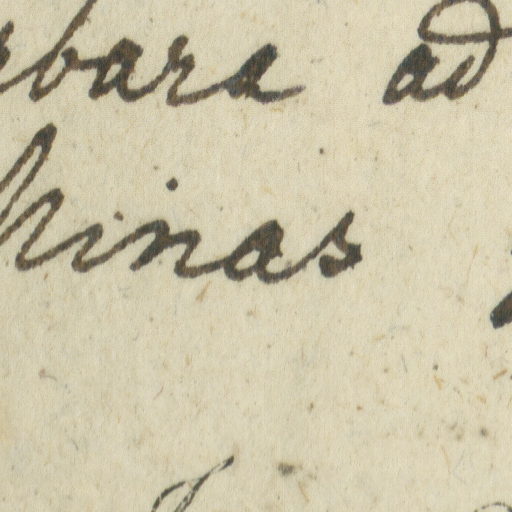 rbara ad
Minas